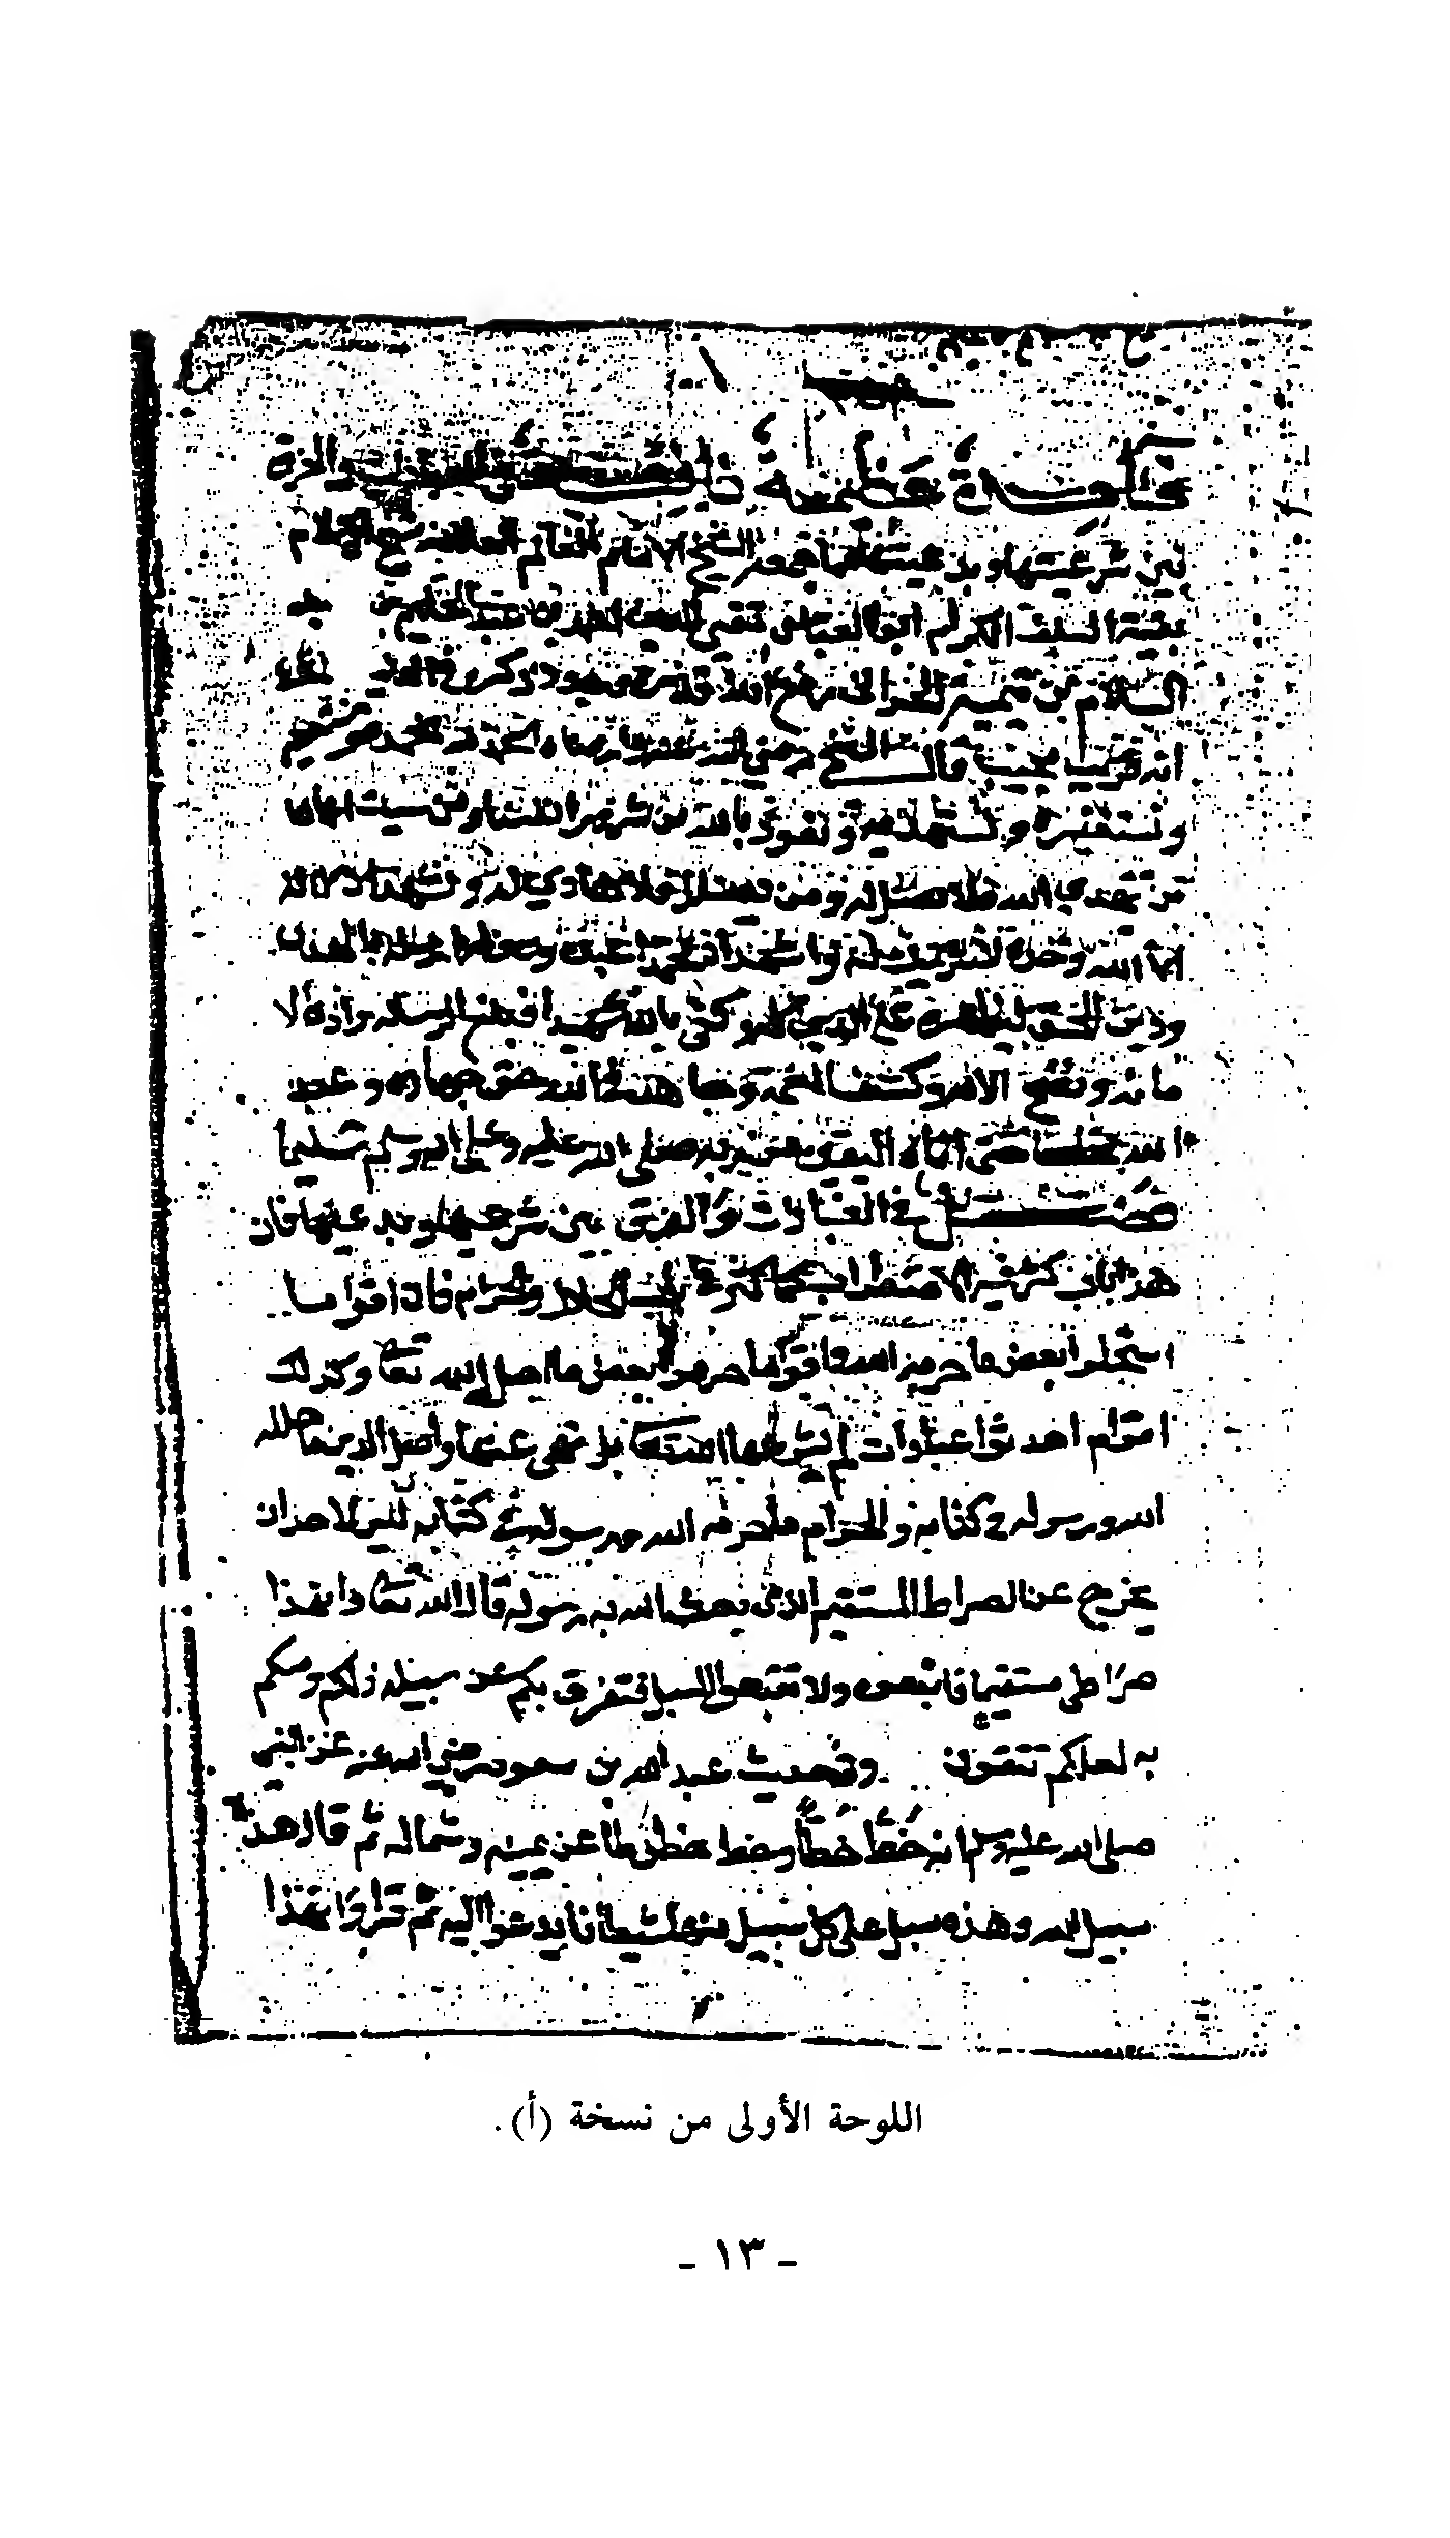 قاعدة عظيمة نافعة في العبادات والفرق
بين شرعيتها وبدعيتها جمعه الشيخ الامام العالم العلامة شيخ الاسلام
بقية السلف الكرام ابو العباس تقي الدين احمد بن عبد الحليم بن عبد
السلام بن تيمية الحراني
انه قريب مجيب قال الشيخ رضي الله عنه وارضاه الحمد لله نحمده ونستعينه
ونستغفره ونستهديه ونعوذ بالله من شرور انفسنا ومن سيئات اعمالنا
من يهدي الله فلا مضل له ومن يضلل فلا هادي له ونشهد ان لا اله
الا الله وحده لا شريك له واشهد ان محمدا عبده ورسوله ارسله بالهدى
ودين الحق ليظهره على الدين كله وكفى بالله شهيدا فبلغ الرسالة وادى الا
مانه ونصح الامه وكشف الغمه وجاهد في الله حق جهاده وعبد
الله مخلصا حتى اتاه اليقين من ربه صلى الله عليه وعلى اله وسلم تسليما
فصل في العبادات والفرق بين شرعيها وبدعيها فان
هذا باب كثر فيه الاضطراب كما كثر في باب الحلال والحرام فان اقواما
استحلوا بعض ما حرمه الله واقواما حرموا بعض ما احل الله تعالى وكذلك
اقوام احدثوا عبادات لم يشرعها الله بل نهى عنها واصل الدين ما حلله
الله ورسوله في كتابه والحرام ما حرمه الله ورسوله في كتابه ليس لاحد ان
يخرج عن الصراط المستقيم الذي بعث الله به رسوله قال الله تعالى وان هذا
صراطي مستقيما فاتبعوه ولا تتبعوا السبل فتفرق بكم عن سبيله ذلكم وصاكم
به لعلكم تتقون وفي حديث عبد الله بن مسعود رضي الله عنه عن النبي
صلى الله عليه وسلم انه خط خطا وخط خطوطا عن يمينه وشماله ثم قال هذه
سبيل الله وهذه سبل على كل سبيل منها شيطانا يدعوا اليه ثم قرا وان هذا
اللوحة الأولى من نسخة (أ).
- ١٣ -